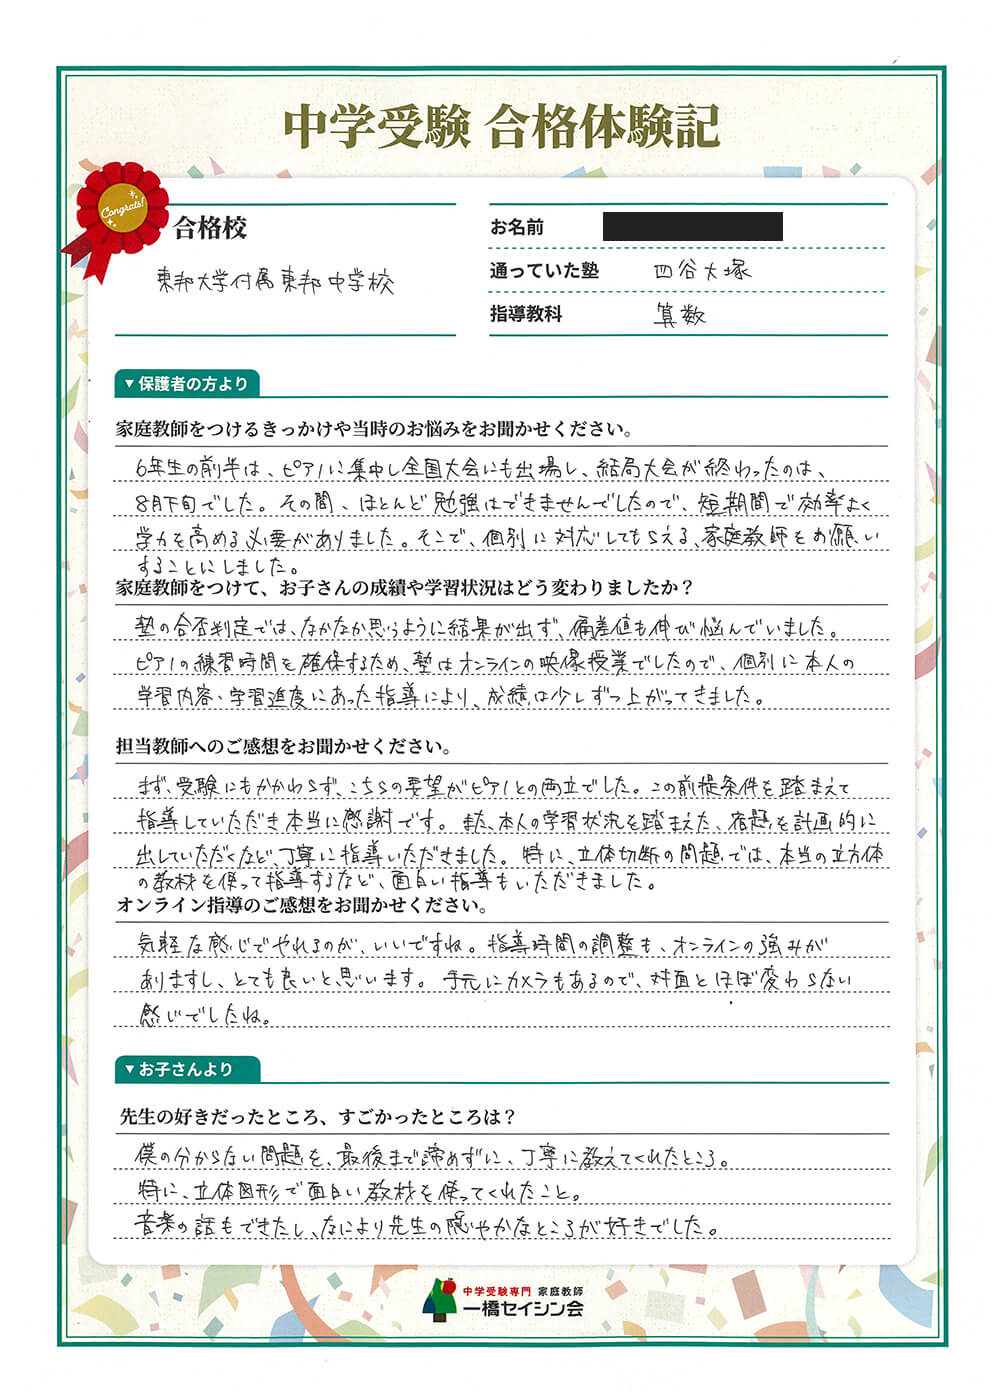 中学受験 合格体験記
Congrats!
合格校
東邦大学付属東邦中学校
お名前
通っていた塾 四谷大塚
指導教科 算数
▼保護者の方より
家庭教師をつけるきっかけや当時のお悩みをお聞かせください。
6年生の前半は、ピアノに集中し全国大会にも出場し、結局大会が終わったのは、
8月下旬でした。その間、ほとんど勉強はできませんでしたので、短期間で効率よく
学力を高める必要がありました。そこで、個別に対応してもらえる、家庭教師をお願い
することにしました。
家庭教師をつけて、お子さんの成績や学習状況はどう変わりましたか？
塾の合否判定では、なかなか思うように結果が出ず、偏差値も伸び悩んでいました。
ピアノの練習時間を確保するため、塾はオンラインの映像授業でしたので、個別に本人の
学習内容・学習進度にあった指導により、成績は少しずつ上がってきました。
担当教師へのご感想をお聞かせください。
まず、受験にもかかわらず、こちらの要望がピアノとの両立でした。この前提条件を踏まえて
指導していただき本当に感謝です。また、本人の学習状況を踏まえた、宿題を計画的に
出していただくなど、丁寧に指導いただきました。特に、立体切断の問題では、本当の立方体
の教材を使って指導するなど、面白い指導もいただきました。
オンライン指導のご感想をお聞かせください。
気軽な感じでやれるのが、いいですね。指導時間の調整も、オンラインの強みが
ありますし、とても良いと思います。手元にカメラもあるので、対面とほぼ変わらない
感じでしたね。
▼お子さんより
先生の好きだったところ、すごかったところは？
僕の分からない問題を、最後まで諦めずに、丁寧に教えてくれたところ。
特に、立体図形で面白い教材を使ってくれたこと。
音楽の話もできたし、なにより先生の穏やかなところが好きでした。
中学受験専門 家庭教師
一橋セイシン会